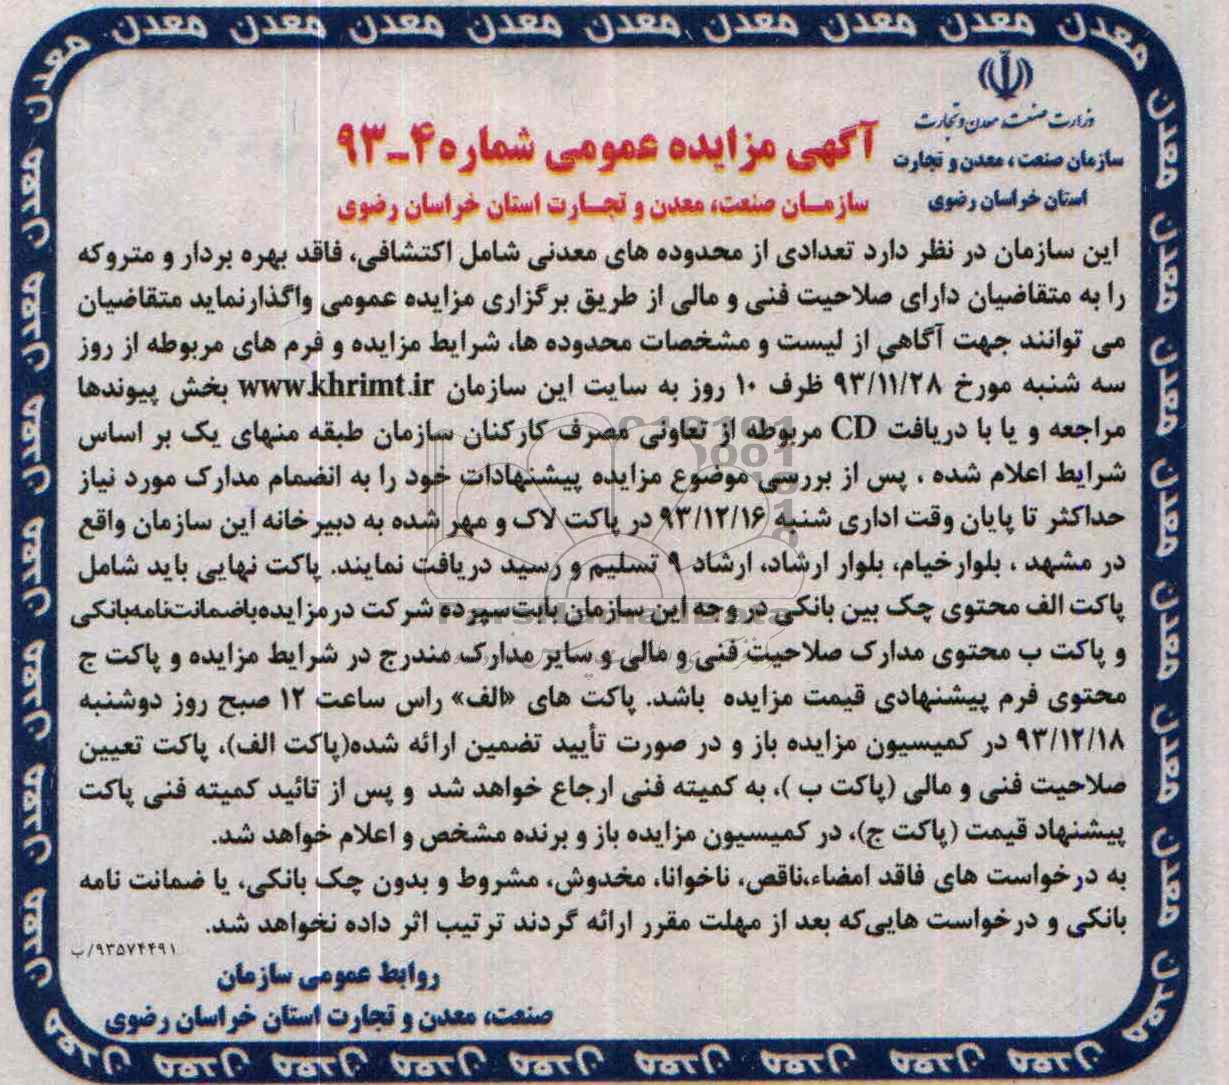 معدن معدن معدن معدن معدن معدن معدن معدن معدن معدن
وزارت صنعت، معدن و تجارت
سازمان صنعت، معدن و تجارت
استان خراسان رضوی
آگهی مزایده عمومی شماره ۴-۹۳
سازمان صنعت، معدن و تجارت استان خراسان رضوی
این سازمان در نظر دارد تعدادی از محدوده های معدنی شامل اکتشافی، فاقد بهره بردار و متروکه
را به متقاضیان دارای صلاحیت فنی و مالی از طریق برگزاری مزایده عمومی واگذارنماید متقاضیان
می توانند جهت آگاهی از لیست و مشخصات محدوده ها، شرایط مزایده و فرم های مربوطه از روز
سه شنبه مورخ ۹۳/۱۱/۲۸ ظرف ۱۰ روز به سایت این سازمان www.khrimt.ir بخش پیوندها
مراجعه و یا با دریافت CD مربوطه از تعاونی مصرف کارکنان سازمان طبقه منهای یک بر اساس
شرایط اعلام شده ، پس از بررسی موضوع مزایده پیشنهادات خود را به انضمام مدارک مورد نیاز
حداکثر تا پایان وقت اداری شنبه ۹۳/۱۲/۱۶ در پاکت لاک و مهر شده به دبیرخانه این سازمان واقع
در مشهد ، بلوارخیام، بلوار ارشاد، ارشاد ۹ تسلیم و رسید دریافت نمایند. پاکت نهایی باید شامل
پاکت الف محتوی چک بین بانکی در وجه این سازمان بابت سپرده شرکت در مزایده یا ضمانت نامه بانکی
و پاکت ب محتوی مدارک صلاحیت فنی و مالی و سایر مدارک مندرج در شرایط مزایده و پاکت ج
محتوی فرم پیشنهادی قیمت مزایده باشد. پاکت های «الف» راس ساعت ۱۲ صبح روز دوشنبه
۹۳/۱۲/۱۸ در کمیسیون مزایده باز و در صورت تأیید تضمین ارائه شده(پاکت الف)، پاکت تعیین
صلاحیت فنی و مالی (پاکت ب )، به کمیته فنی ارجاع خواهد شد و پس از تائید کمیته فنی پاکت
پیشنهاد قیمت (پاکت ج)، در کمیسیون مزایده باز و برنده مشخص و اعلام خواهد شد.
به درخواست های فاقد امضاء،ناقص، ناخوانا، مخدوش، مشروط و بدون چک بانکی، یا ضمانت نامه
بانکی و درخواست هایی‌که بعد از مهلت مقرر ارائه گردند ترتیب اثر داده نخواهد شد.
۹۳۵۷۴۴۹۱/ب
روابط عمومی سازمان
صنعت، معدن و تجارت استان خراسان رضوی
معدن معدن معدن معدن معدن معدن معدن معدن معدن